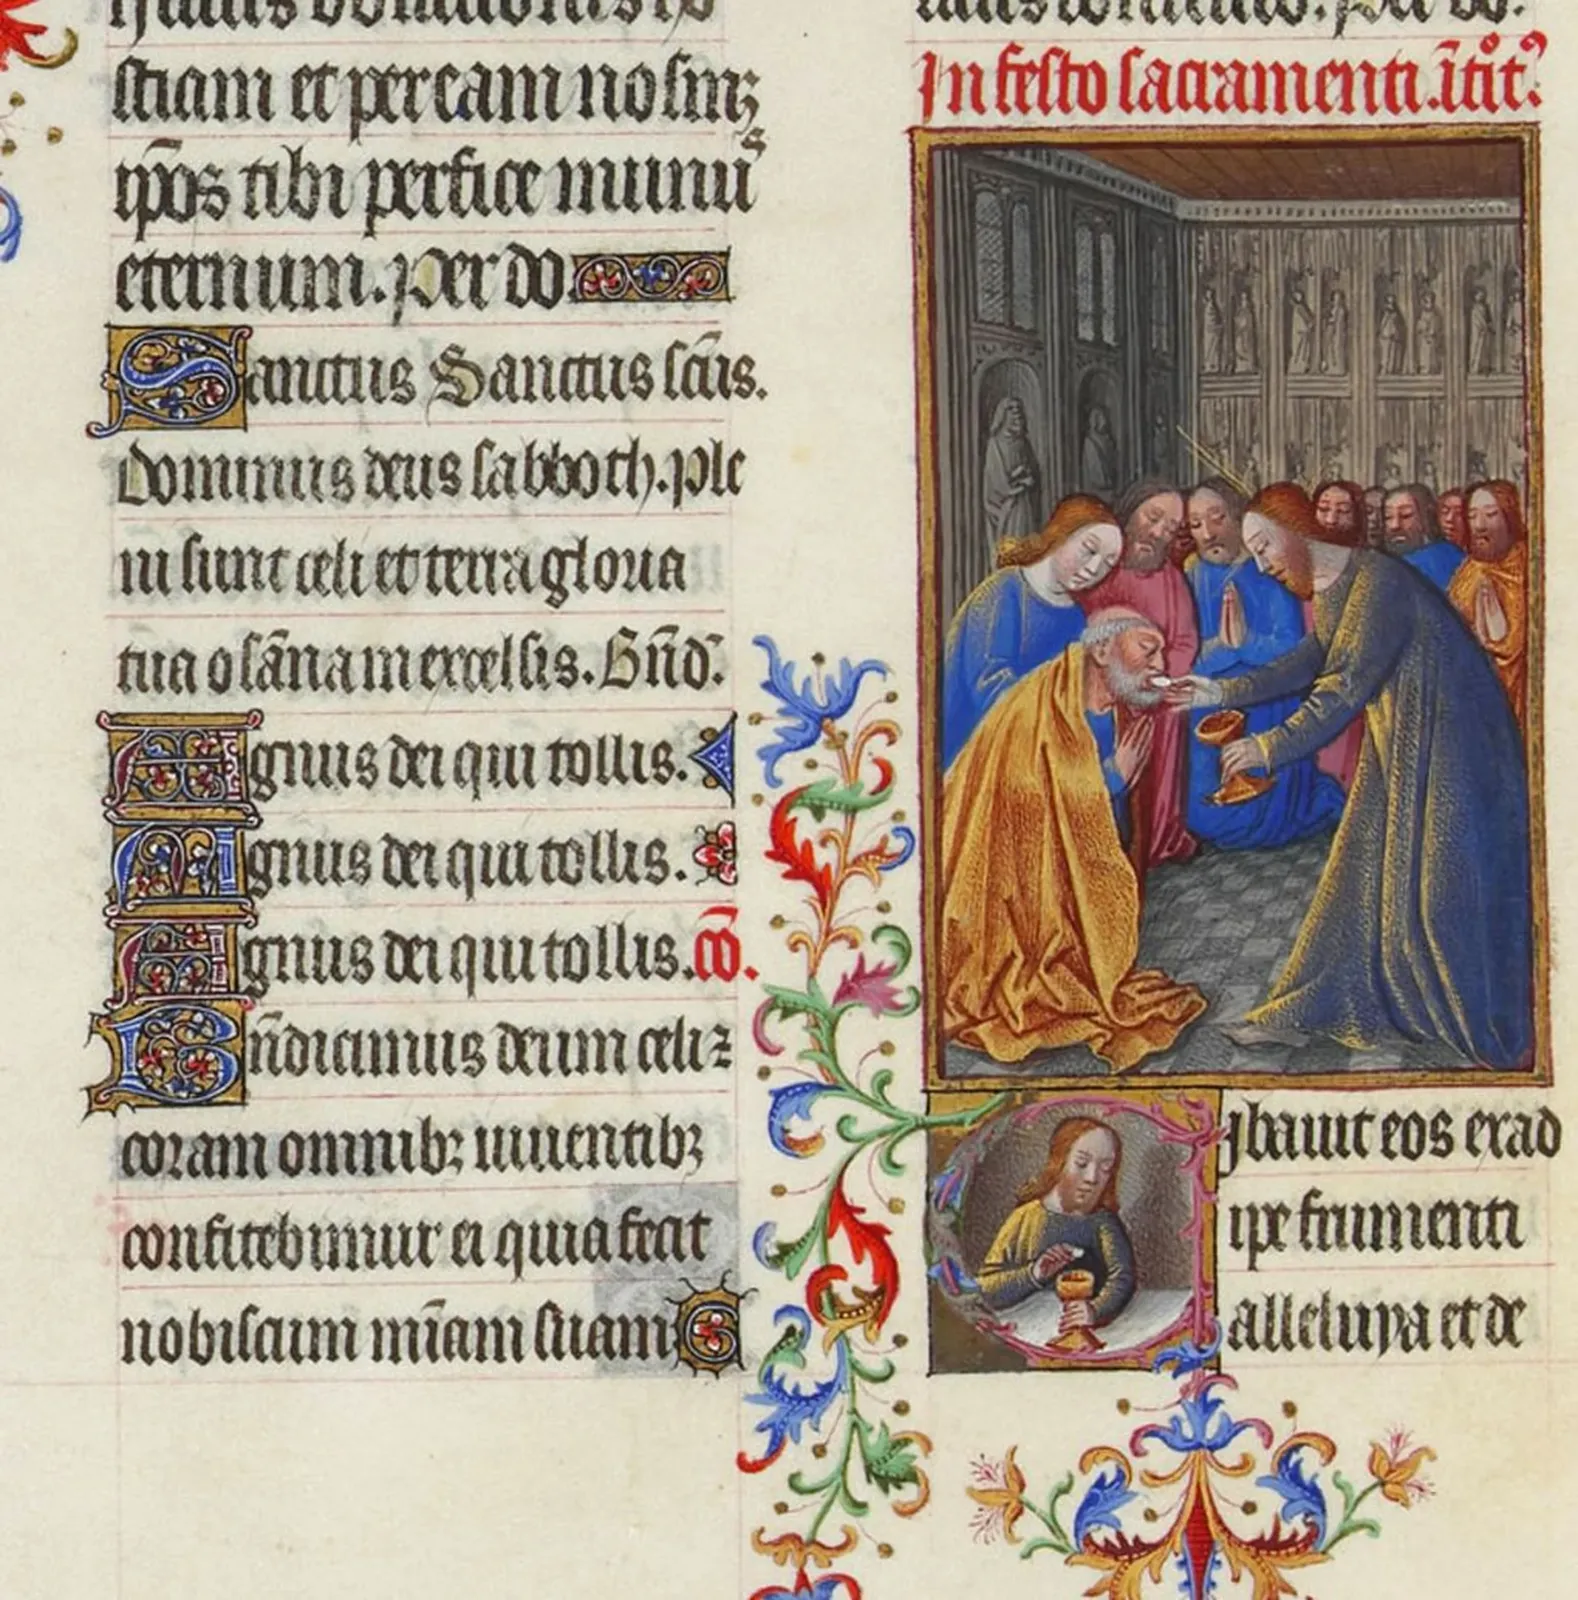 stiam et per eam nosmꝫ
ip̄os tibi perfice munuˢ
eternum. Per do
Sanctus Sanctus sc̄us.
Dominus deus sabboth. Ple
ni sunt celi et terra gloria
tua osāna in excelsis. Bn̄d.
Agnus dei qui tollis.
Agnus dei qui tollis.
Agnus dei qui tollis. cō.
Bn̄dicimus deum celi ⁊
coram omnibꝫ uiuentibꝫ
confitebimur ei quia fecit
nobiscum mīam suam
In festo sacramenti.
Cibauit eos ex ad
ipe frumenti
alleluya et de